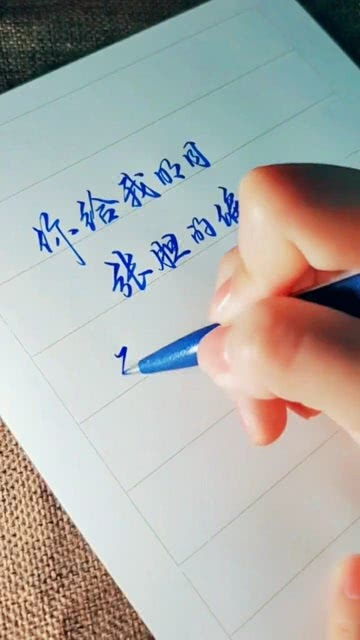 你给我明目
张胆的偏